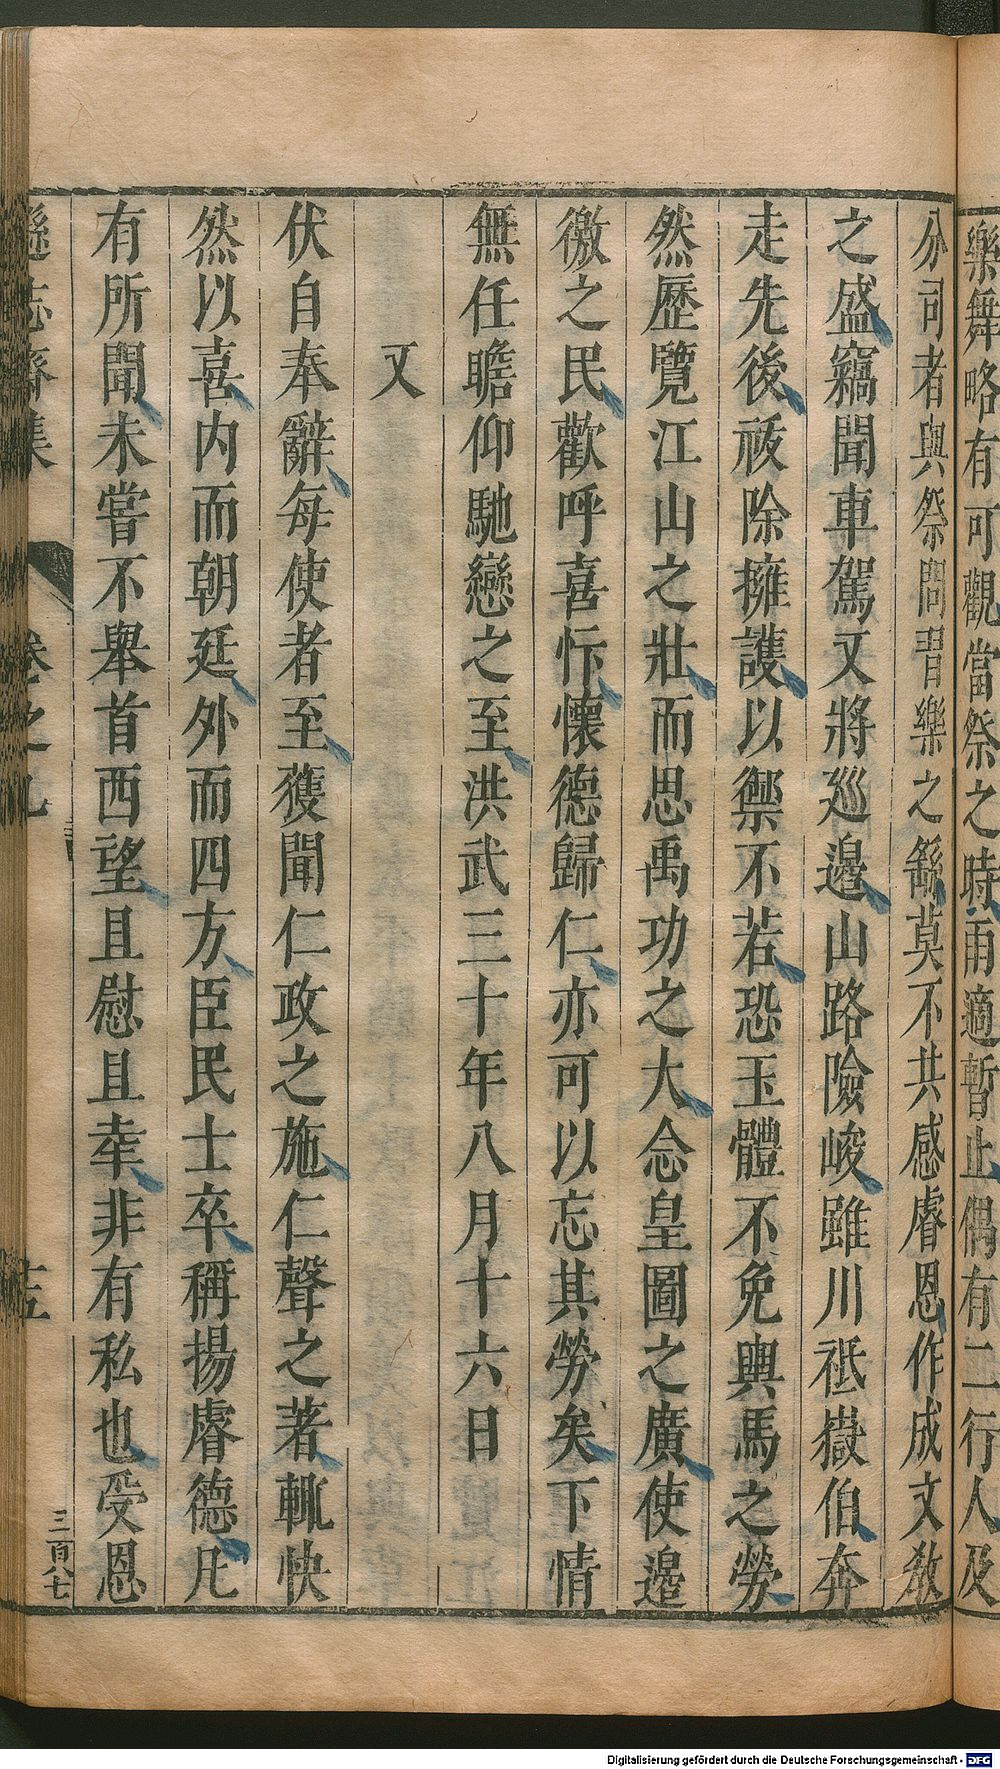 樂舞略有可觀當祭之時雨適暫止偶有二行人及
分司者與祭問昔樂之繇莫不共感睿恩作成文教
之盛竊聞車駕又將巡邊山路險峻雖川祗嶽伯奔
走先後祓除擁護以禦不若恐玉體不免輿馬之勞
然歷覽江山之壯而思禹功之大念皇圖之廣使邊
徼之民歡呼喜忭懷德歸仁亦可以忘其勞矣下情
無任瞻仰馳戀之至洪武三十年八月十六日
又
伏自奉辭每使者至獲聞仁政之施仁聲之著輒快
然以喜內而朝廷外而四方臣民士卒稱揚睿德凡
有所聞未嘗不舉首西望且慰且幸非有私也受恩
遜志齋集 卷之九 十五
三百八七
Digitalisierung gefördert durch die Deutsche Forschungsgemeinschaft - DFG